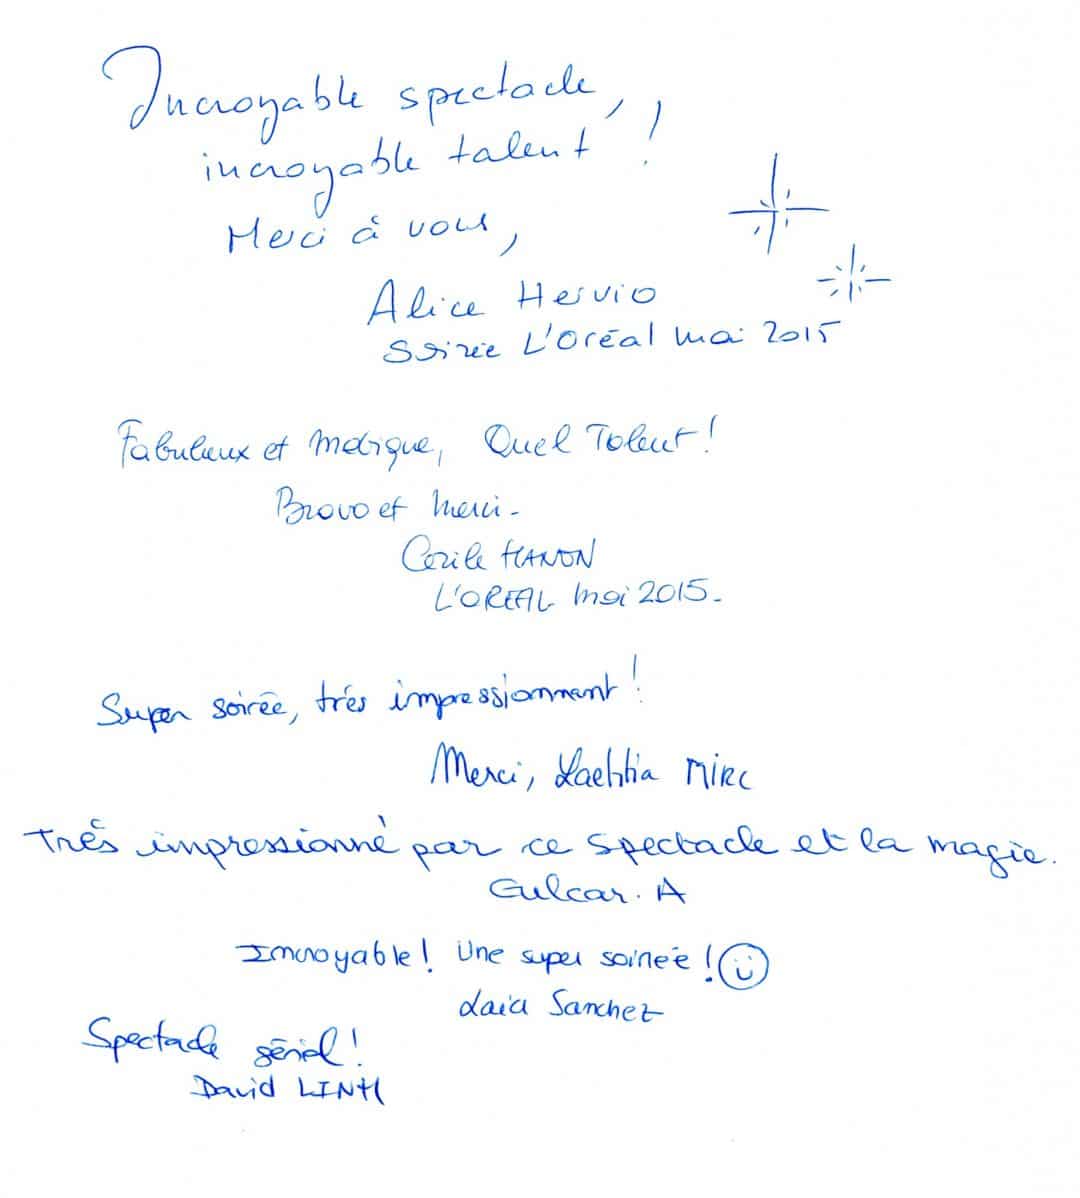 Incroyable spectacle,
incroyable talent !
Merci à vous,
Alice Hervio
Soirée L'Oréal mai 2015
Fabuleux et magique, Quel Talent !
Bravo et merci -
Cécile HANON
L'OREAL mai 2015 -
Super soirée, très impressionnant !
Merci, Laetitia MIRC
Très impressionné par ce spectacle et la magie.
Gulcar. A
Incroyable ! Une super soirée !
Laia Sanchez
Spectacle génial !
David